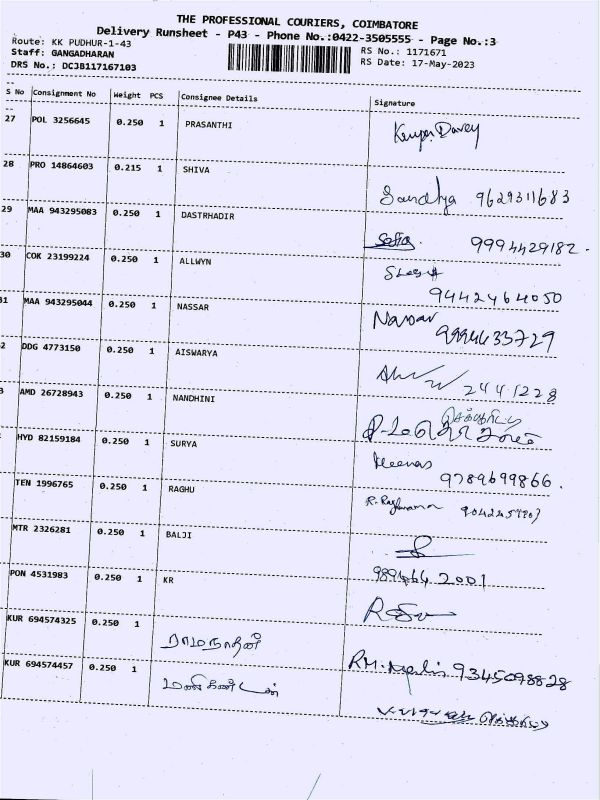 THE PROFESSIONAL COURIERS, COIMBATORE
Delivery Runsheet - P43 - Phone No.:0422-3505555 - Page No.:3
Route: KK PUDHUR-1-43 RS No.: 1171671
Staff: GANGADHARAN RS Date: 17-May-2023
DRS No.: DCJB117167103
S No Consignment No Weight PCS Consignee Details Signature
27 POL 3256645 0.250 1 PRASANTHI
28 PRO 14864603 0.215 1 SHIVA Sandhya 9629311683
29 MAA 943295083 0.250 1 DASTRHADIR 9994429182
30 COK 23199224 0.250 1 ALLWYN
9442464050
31 MAA 943295044 0.250 1 NASSAR Nassar
9994633729
2 DDG 4773150 0.250 1 AISWARYA 2441228
3 AMD 26728943 0.250 1 NANDHINI
HYD 82159184 0.250 1 SURYA Meenas
9789699866.
TEN 1996765 0.250 1 RAGHU
MTR 2326281 0.250 1 BALJI
PON 4531983 0.250 1 KR
KUR 694574325 0.250 1 ராமநாதன்
RM. 9345098828
KUR 694574457 0.250 1 மணிகண்டன்